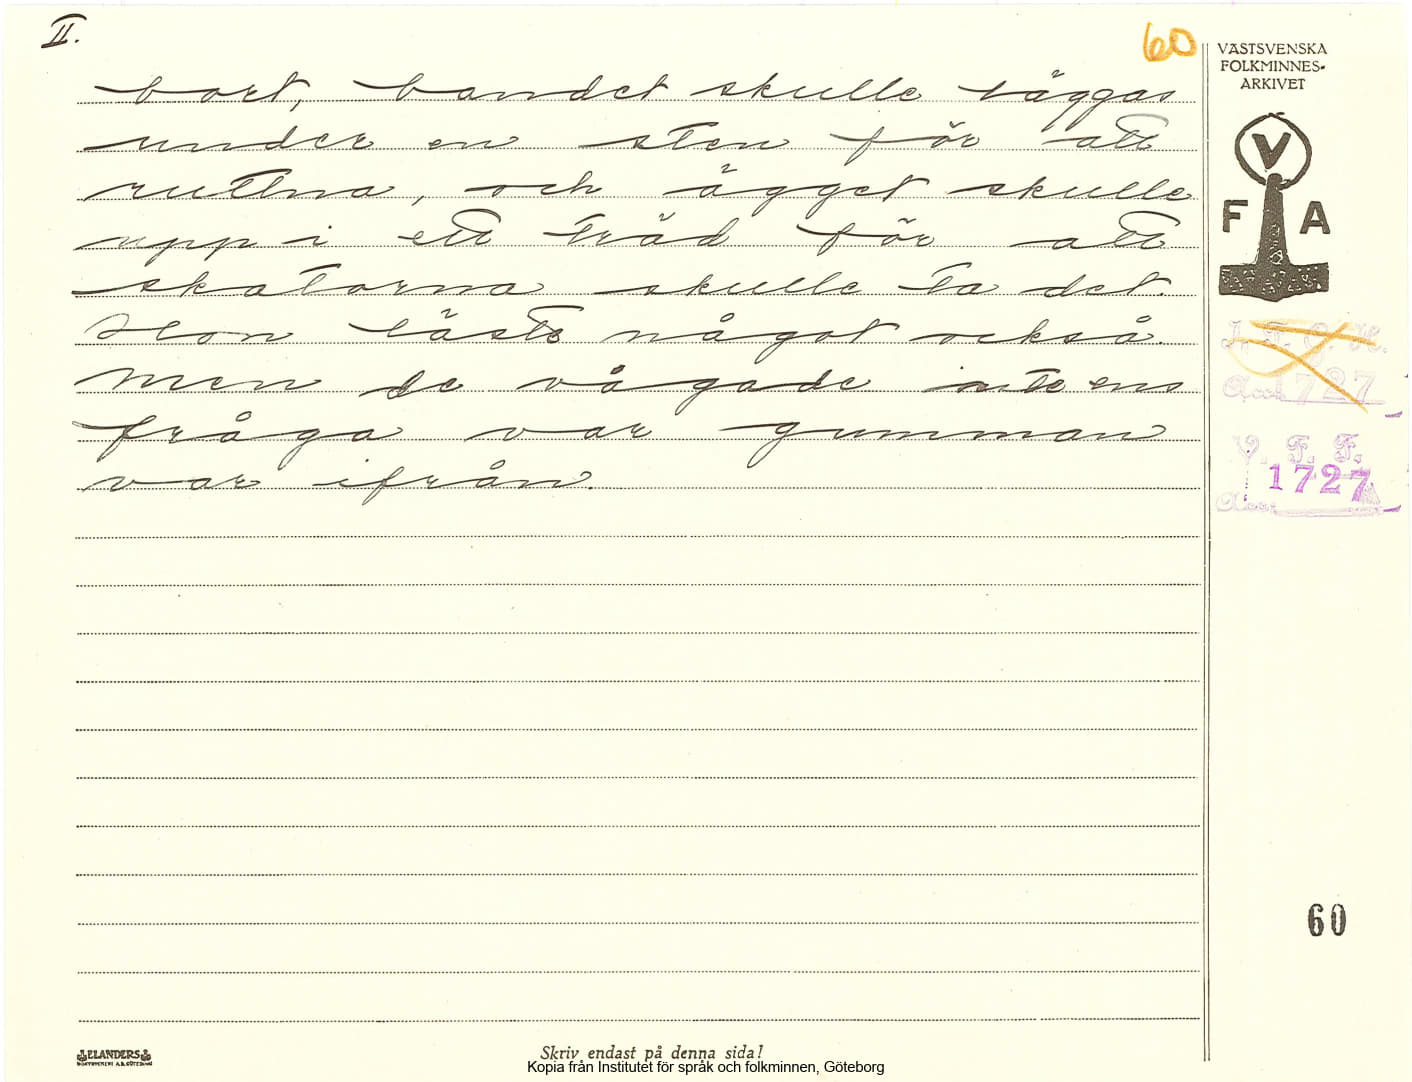 II.
60
VÄSTSVENSKA
FOLKMINNES-
ARKIVET
bort, bandet skulle läggas
under en sten för att
ruttna, och ägget skulle
upp i ett träd för att
skatorna skulle ta det.
Hon läste något också.
Men de vågade inte ens
fråga var gumman
var ifrån.
V
F A
I. F. G. H.
Acc. 1727
V. F. F.
1727
Acc.
60
ELANDERS
Skriv endast på denna sida!
Kopia från Institutet för språk och folkminnen, Göteborg